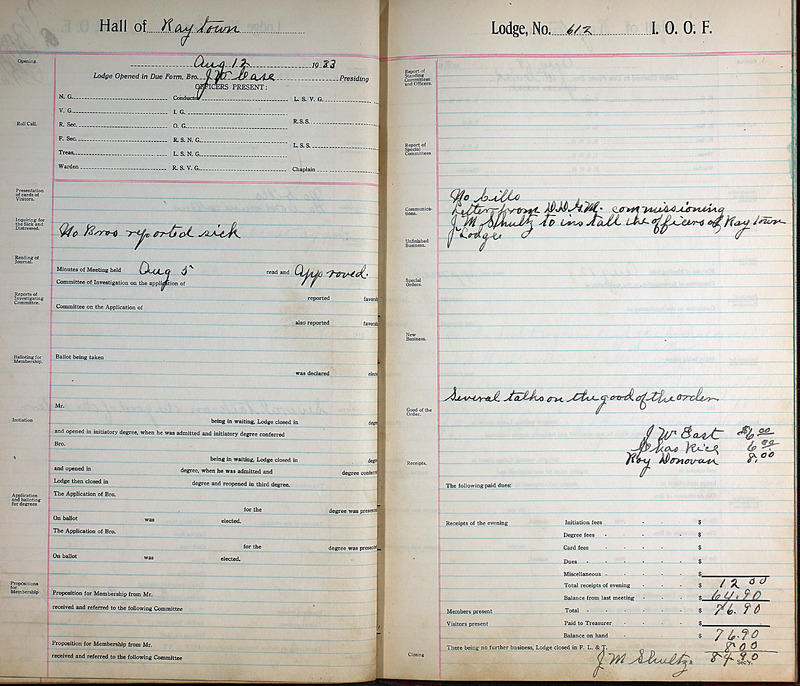 Hall of Raytown
Opening.
Aug 12 1933
Lodge Opened in Due Form, Bro. J W Case Presiding
OFFICERS PRESENT:
Roll Call.
N. G. Conductor L. S. V. G.
V. G. I. G.
R. Sec. O. G. R.S.S.
F. Sec. R. S. N. G.
Treas. L. S. N. G. L.S.S.
Warden R. S. V. G. Chaplain
Presentation of cards of Visitors.
Inquiring for the Sick and Distressed.
No Bros reported sick
Reading of Journal.
Minutes of Meeting held Aug 5 read and approved.
Committee of Investigation on the application of
Reports of Investigating Committee.
reported
Committee on the Application of
also reported
Balloting for Membership.
Ballot being taken
was declared
Mr.
Initiation
being in waiting, Lodge closed in
and opened in initiatory degree, when he was admitted and initiatory degree conferred
Bro.
being in waiting, Lodge closed in
and opened in degree, when he was admitted and degree
Lodge then closed in degree and reopened in third degree.
Application and balloting for degrees
The Application of Bro.
for the degree was
On ballot was elected.
The Application of Bro.
for the degree was
On ballot was elected.
Propositions for Membership
Proposition for Membership from Mr.
received and referred to the following Committee
Proposition for Membership from Mr.
received and referred to the following Committee
Lodge, No. 612 I. O. O. F.
Report of Standing Committees and Officers.
Report of Special Committees
No bills
Communications.
Letter from D.D.G.M. commissioning
J M Shultz to install the officers of Raytown
Lodge
Unfinished Business.
Special Orders.
New Business.
Several talks on the good of the order
Good of the Order.
J W East $6.00
Chas Rice 6.00
Receipts.
Roy Donovan 8.00
The following paid dues:
Receipts of the evening Initiation fees $
Degree fees $
Card fees $
Dues $
Miscellaneous $
Total receipts of evening $ 12 00
Balance from last meeting $ 64.90
Members present Total $ 76.90
Visitors present Paid to Treasurer $
Balance on hand $ 76.90
There being no further business, Lodge closed in F. L. & T. 8.00
Closing J M Shultz 84 90 Sec'y.